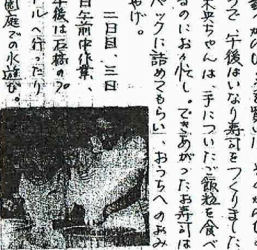 うで、午後はいなり寿司をつくりました
ちゃんは、手についたご飯粒を食べ
るのにおお忙し。できあがったお寿司は
パックに詰めてもらい、おうちへのおみ
やげ。
二日目、三日
日午前中作業、
午後は石椅のプ
ールへ行ったり
園庭での水遊び。